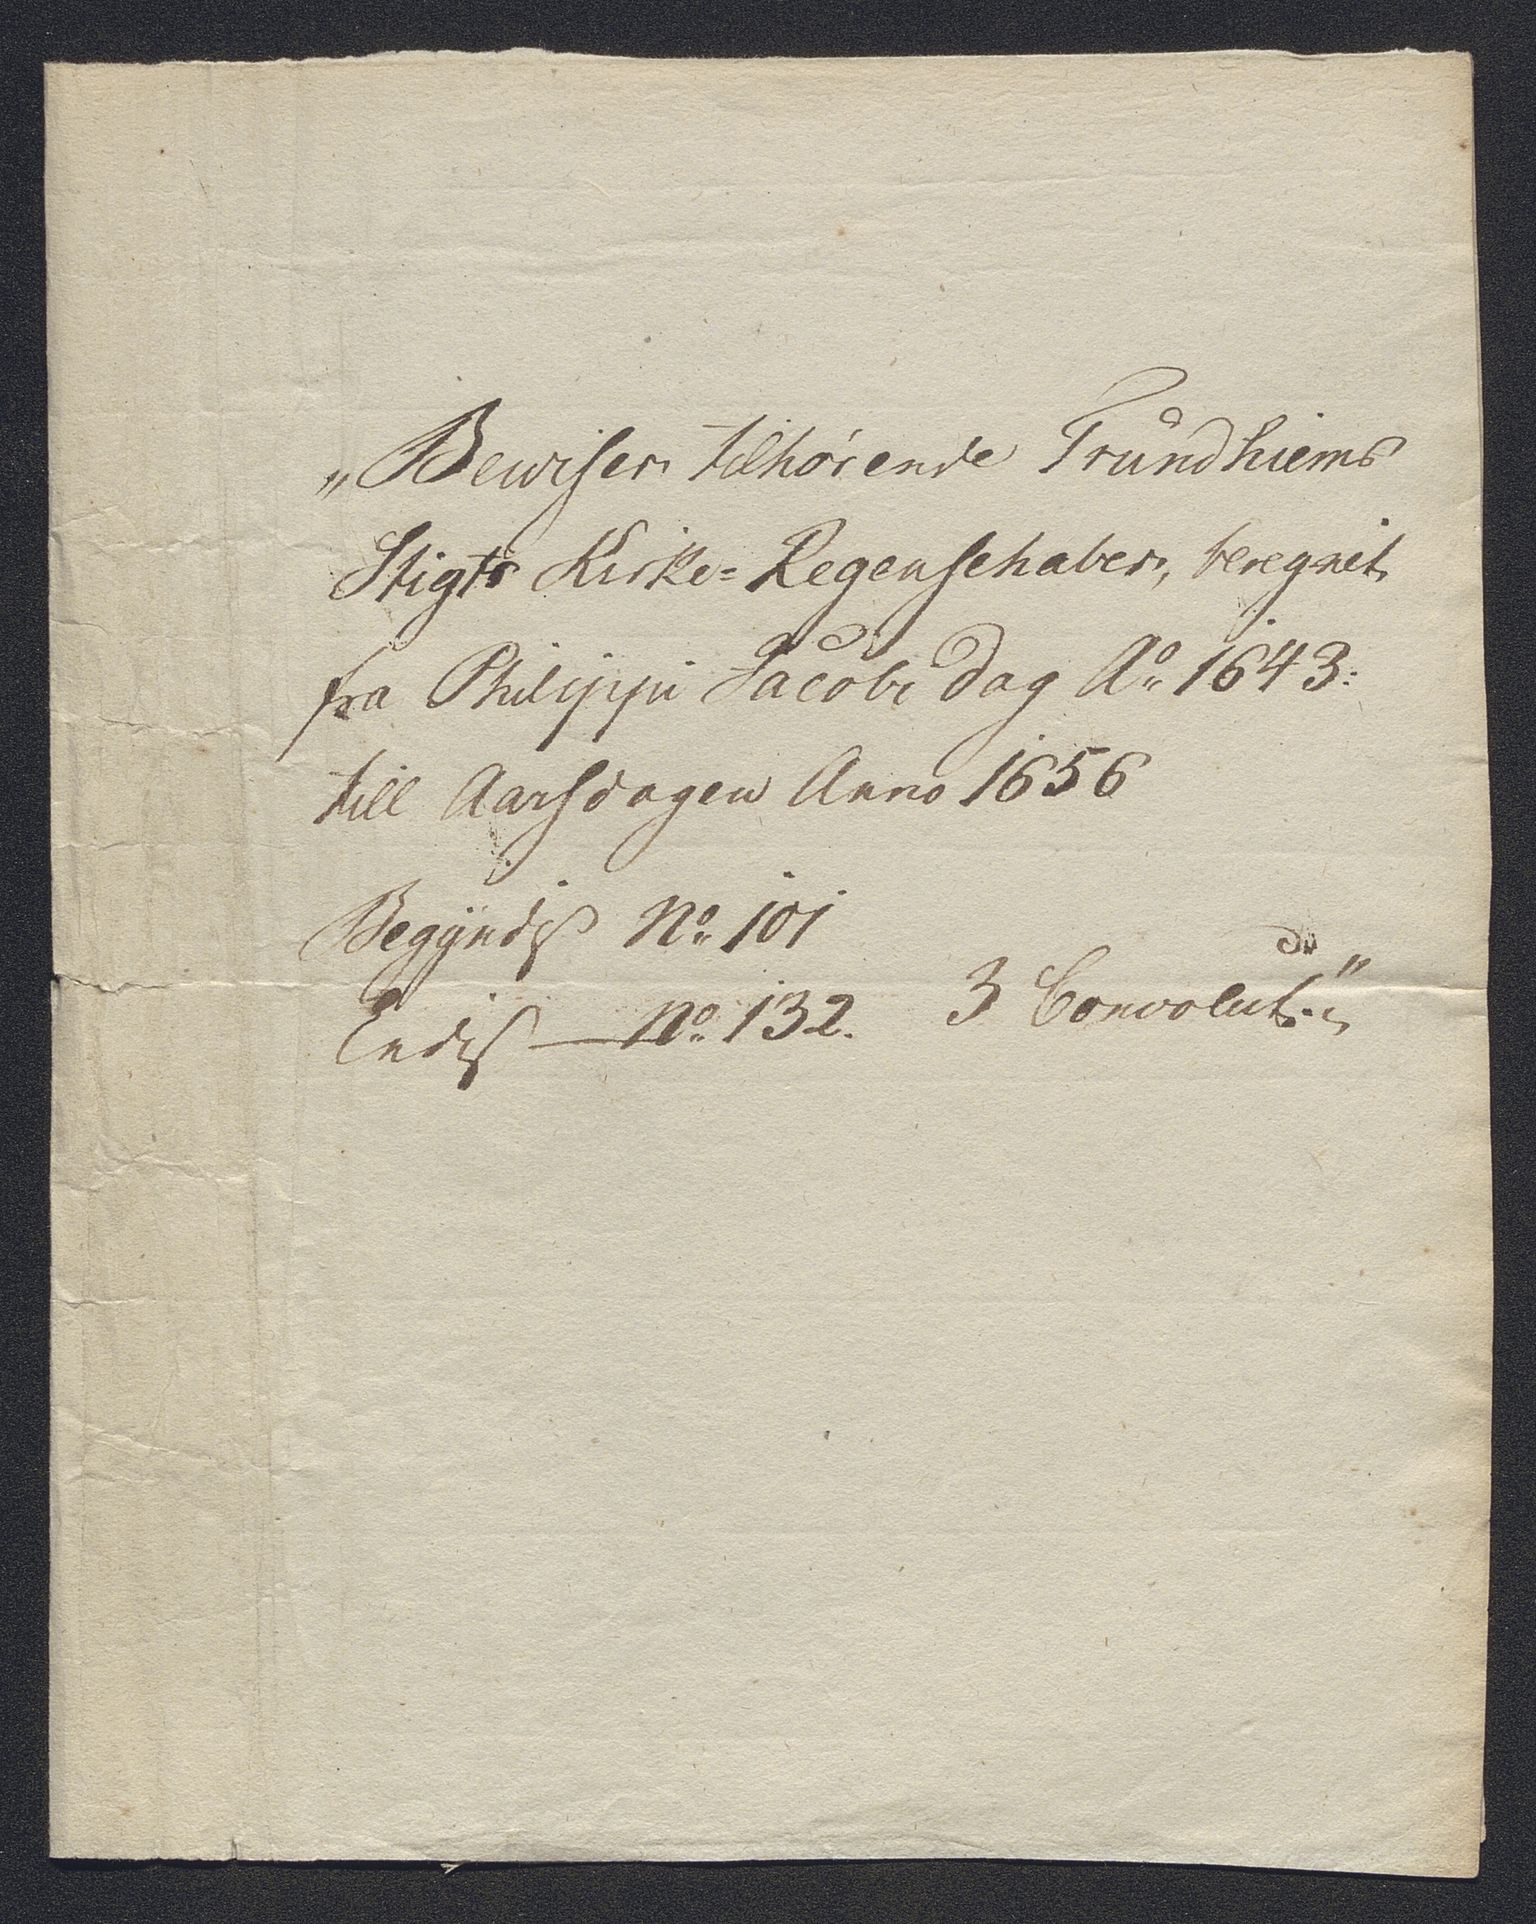 „Bewiser tilhörende Trundhiems
Stigts Kirke= Regenschaber, beregnet
fra Philippi Jacobi dag Ao. 1643.
till Aarsdagen Anno 1656
Begÿndis No. 101
Endis — No. 132. 3 Convolut.“